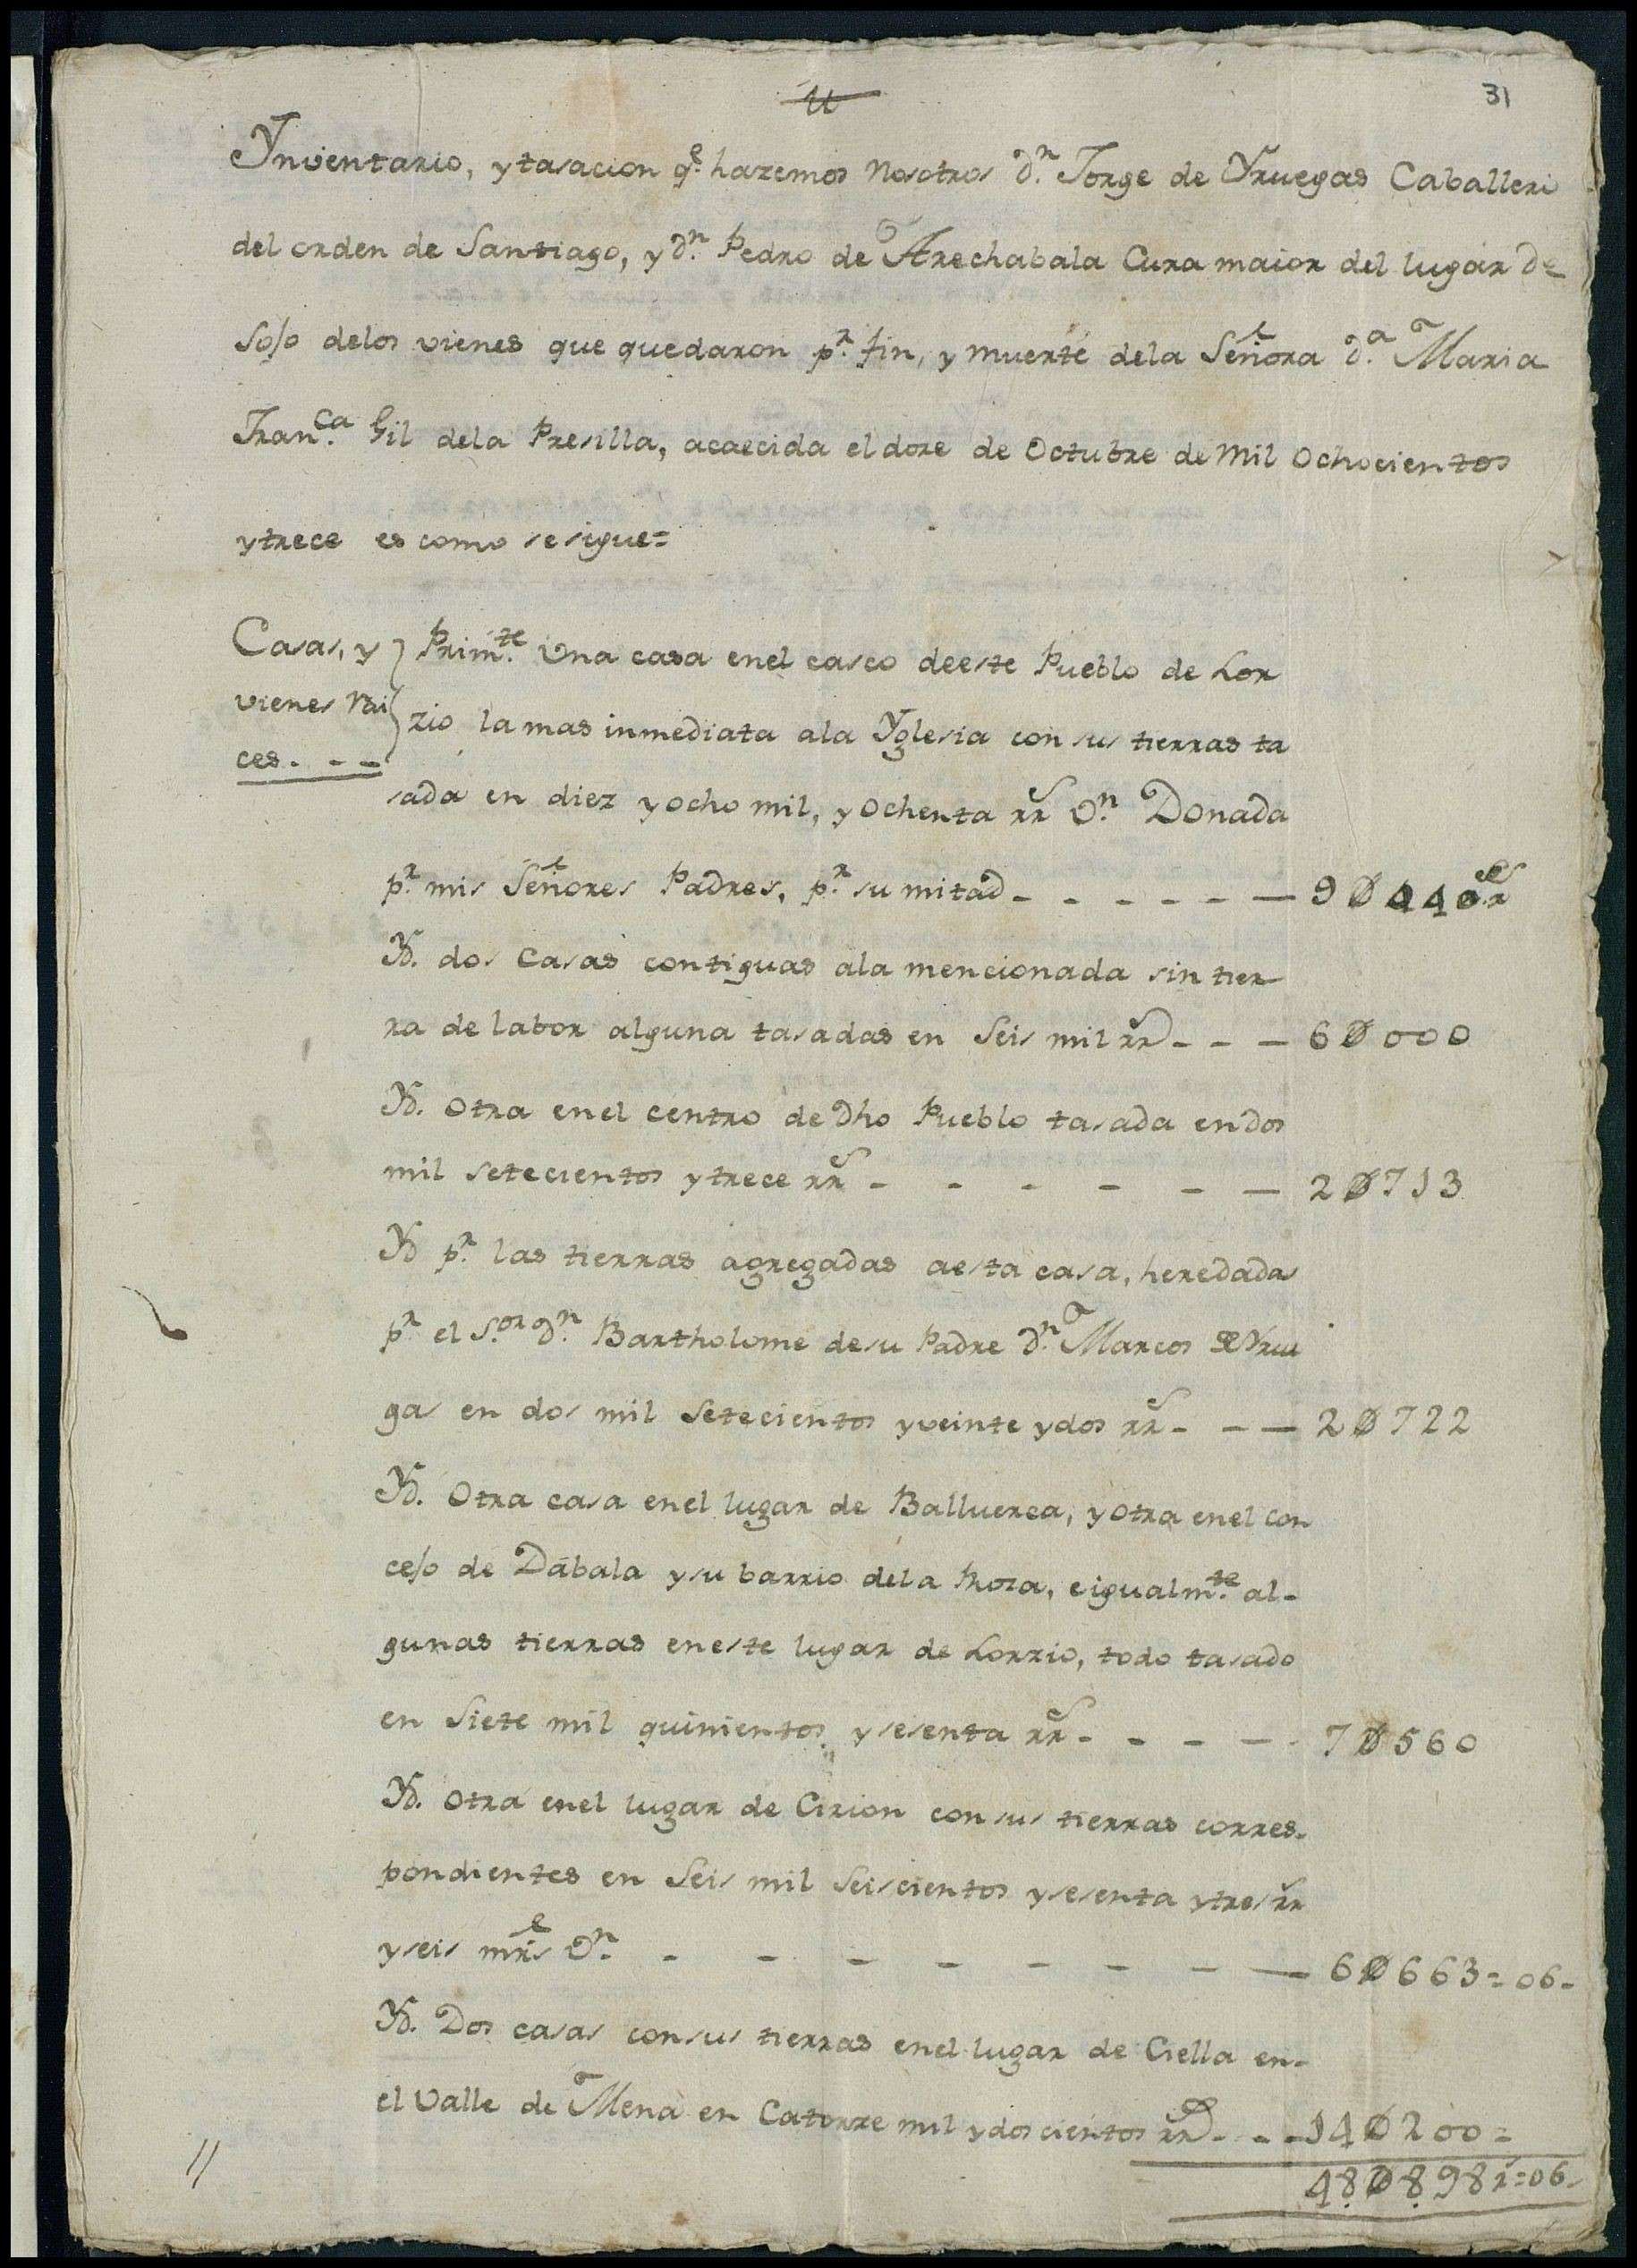 31
Ynventario, y tasacion q.e hazemos Nosotros D.n Jorge de Yruegas Caballero
del orden de Santiago, y D.n Pedro de Arechabala Cura maior del lugar de
Sojo delos vienes que quedaron p.r fin, y muerte dela Señora D.a Maria
Fran.ca Gil dela Presilla, acaecida el doze de Octubre de Mil Ochocientos
y trece es como se sigue=
Casas, y
vienes rai
ces. - -
Prim.te Una casa enel casco deeste Pueblo de Lor
zio la mas inmediata ala Yglesia con sus tierras ta
sada en diez y ocho mil, y ochenta rr.s V.n Donada
p.r mis Señores Padres, p.r su mitad - - - - - - 9Ø040 rr.s
Yd. dos Casas contiguas ala mencionada sin tier
ra de labor alguna tasadas en Seis mil rr.s - - - 6Ø000
Yd. Otra enel centro de Dho Pueblo tasada en dos
mil setecientos y trece rr.s - - - - - - 2Ø713
Yd p.r las tierras agregadas aesta casa, heredadas
p.r el S.or D.n Bartholome de su Padre D.n Marcos de Yrue
gas en dos mil Setecientos y veinte y dos rr.s - - - 2Ø722
Yd. Otra casa enel lugar de Balluerca, y otra enel con
cejo de Dábala y su barrio dela Roza, e igualm.te al-
gunas tierras en este lugar de Lorzio, todo tasado
en Siete mil quinientos y sesenta rr.s - - - - 7Ø560
Yd. Otra enel lugar de Cirion con sus tierras corres-
pondientes en Seis mil Seiscientos y sesenta y tres rr.s
y seis mrs V.n - - - - - - - - 6Ø663=06-
Yd. Dos casas con sus tierras enel lugar de Ciella en-
el Valle de Mena en Catorze mil y doscientos rr.s - - - 14Ø200=
48Ø898 r=06-